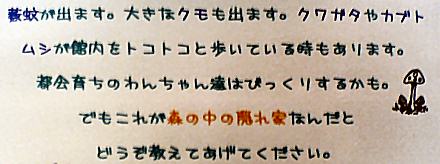 藪蚊が出ます。大きなクモも出ます。クワガタやカブト
ムシが館内をトコトコと歩いている時もあります。
都会育ちのわんちゃん達はびっくりするかも。
でもこれが森の中の隠れ家なんだと
どうぞ教えてあげてください。